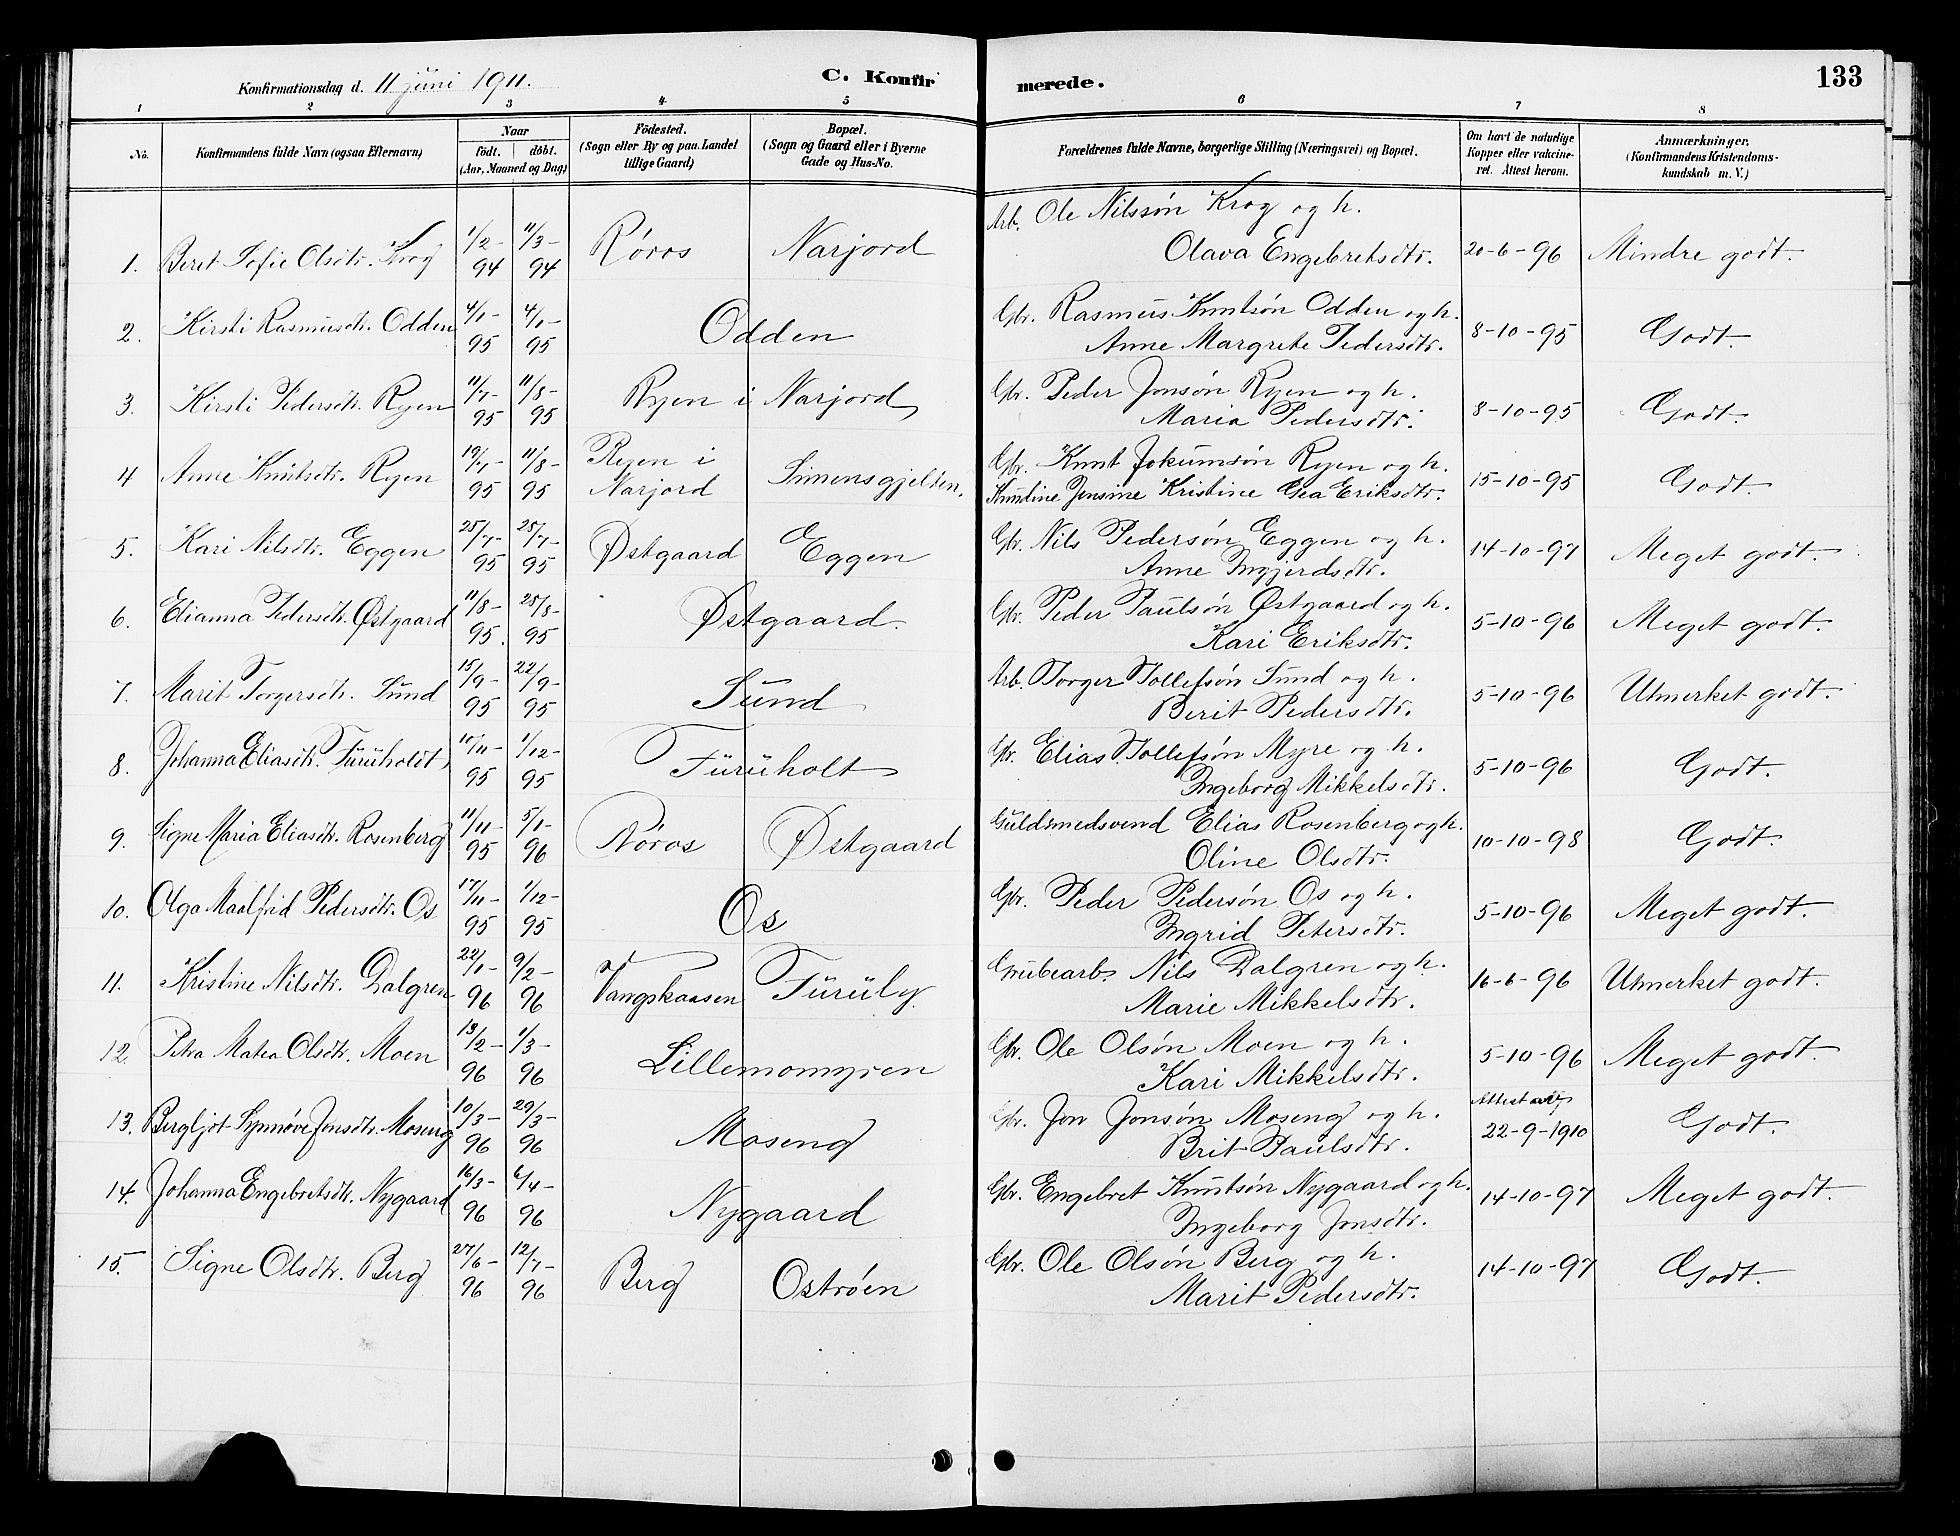 Konfirmationsdag d. 11 juni 1911. C. Konfirmerede. 133
1 2 3 4 5 6 7 8
No. Konfirmandens fulde Navn (ogsaa Efternavn) Naar födt. döbt. (Aar, Maaned og Dag) Födested. (Sogn eller By og paa Landet tillige Gaard) Bopæl. (Sogn og Gaard eller i Byerne Gade og Hus-No. Forældrenes fulde Navne, borgerlige Stilling (Næringsvei) og Bopæl. Om havt de naturlige Kopper eller vakcineret. Attest herom. Anmærkninger. (Konfirmandens Kristendomskundskab m. V.)
1. Beret Sofie Olsdtr. Krog 1/2-94 11/3-94 Røros Narjord Arb. Ole Nilssøn Krog og h. Olava Engebretsdtr. 20-6-96 Mindre godt.
2. Kirsti Rasmusdtr. Odden 4/1-95 4/1-95 Odden Gbr. Rasmus Knutsøn Odden og h. Anne Margrete Pedersdtr. 8-10-95 Godt.
3. Kirsti Pedersdtr. Ryen 11/7-95 11/8-95 Ryen i Narjord Gbr. Peder Jonsøn Ryen og h. Maria Pedersdtr. 8-10-95 Godt.
4 Anne Knutsdtr. Ryen 19/7-95 11/8-95 Ryen i Narjord Simensgjelten. Gbr. Knut Jokumsøn Ryen og h. Kristine Gea Eriksdtr. 15-10-95 Godt.
5. Kari Nilsdtr. Eggen 25/7-95 28/7-95 Østgaard Eggen Gbr. Nils Pedersøn Eggen og h. Anne Ingjerdsdtr. 14-10-97 Meget godt.
6. Elianna Pedersdtr. Østgaard 11/8-95. 25/8-95 Østgaard. Gbr. Peder Paulsøn Østgaard og h. Kari Eriksdtr. 5-10-96 Meget godt.
7. Marit Torgersdtr. Sund 15/9-95 22/9-95 Sund Arb. Torger Tollefsøn Sund og h. Berit Pedersdtr. 5-10-96 Utmerket godt.
8. Johanna Eliasdtr. Furuholdt 10/11-95 1/12-95 Furuholt Gbr. Elias Tollefsøn Myre og h. Ingeborg Mikkelsdtr. 5-10-96 Godt.
9. Signe Maria Eliasdtr. Rosenberg 11/11-95 5/1-96 Røros Østgaard Guldsmedsvend Elias Rosenberg og h. Oline Olsdtr. 10-10-98 Godt.
10. Olga Maalfrid Pedersdtr. Os 17/11-95 1/12-95 Os Gbr. Peder Pedersøn Os og h. Ingrid Petersdtr. 5-10-96 Meget godt.
11. Kristine Nilsdtr. Dalgren 22/1-96 9/2-96 Vangskaasen Furuly Grubearb. Nils Dalgren og h. Marie Mikkelsdtr. 16-6-96 Utmerket godt.
12. Petra Matea Olsdtr. Moen 13/2-96 1/3-96 Lillemomyren Gbr. Ole Olsøn Moen og h. Kari Mikkelsdtr. 5-10-96 Meget godt.
13. Bergljot Synnøve Jonsdtr. Moseng 10/3-96 29/3-96 Moseng Gbr. Jon Jonsøn Moseng og h. Brit Paulsdtr. Attest 22-9-1910 Godt.
14. Johanna Engebretsdtr. Nygaard 16/3-96 6/4-96 Nygaard Gbr. Engebret Knutsøn Nygaard og h. Ingeborg Jonsdtr. 14-10-97 Meget godt.
15. Signe Olsdtr. Berg 27/6-96 12/7-96 Berg Ostrøen Gbr. Ole Olsøn Berg og h. Marit Pedersdtr. 14-10-97 Godt.